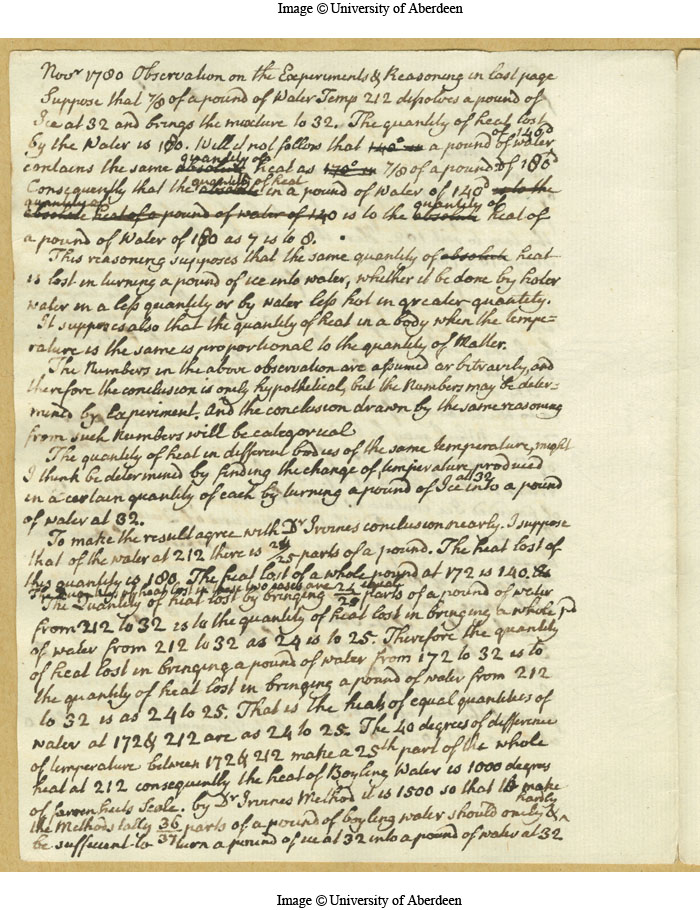 Image © University of Aberdeen
Novr 1780 Observation on the Experiments & Reasoning in last page
Suppose that 7/8 of a pound of Water Temp 212 dissolves a pound of
Ice at 32 and brings the mixture to 32. The quantity of heat lost
by the Water is 180. Will it not follow that 140° in a pound of water of 140d
contains the same absolute quantity of heat as 7/8 of a pound of 180d
Consequently that the absolute quantity of heat in a pound of water of 140d to the
quantity of
absolute heat of a pound of water of 140 is to the absolute quantity of heat of
a pound of Water of 180 as 7 is to 8.
This reasoning supposes that the same quantity of absolute heat
is lost in turning a pound of ice into water, whether it be done by hoter
water in a less quantity or by water less hot in greater quantity.
It supposes also that the quantity of heat in a body when the tempe=
rature is the same is proportional to the quantity of Matter.
The Numbers in the above observation are assumed arbitrarily, and
therefore the conclusion is only hypothetical, but the Numbers may be deter=
mined by Experiment. And the conclusion drawn by the same reasoning
from such Numbers will be categorical
The quantity of heat in different bodies of the same temperature, might
I think be determined by finding the change of temperature produced
in a certain quantity of each by turning a pound of Ice at 32 into a pound
of water at 32.
To make the result agree with Dr Irvines conclusion nearly. I suppose
that of the water at 212 there is 24/25 parts of a pound. The heat lost of
this quantity is 180. The heat lost of a whole pound at 172 is 140.
The Quantitys of heat lost in these two cases are equal
The Quantity of heat lost by bringing 24/25 parts of a pound of water
from 212 to 32 is to the quantity of heat lost in bringing a whole pd
of water from 212 to 32 as 24 is to 25. Therefore the quantity
of heat lost in bringing a pound of water from 172 to 32 is to
the quantity of heat lost in bringing a pound of water from 212
to 32 is as 24 to 25. That is the heats of equal quantities of
water at 172 & 212 are as 24 to 25. The 40 degrees of difference
of temperature between 172 & 212 make a 25th part of the whole
heat at 212 consequently the heat of Boyling Water is 1000 degrees
of Farenheits Scale. by Dr Irvines Method it is 1500 so that to make
the Methods tally 36/37 parts of a pound of boyling water should only & hardly
be sufficient to turn a pound of ice at 32 into a pound of water at 32
Image © University of Aberdeen